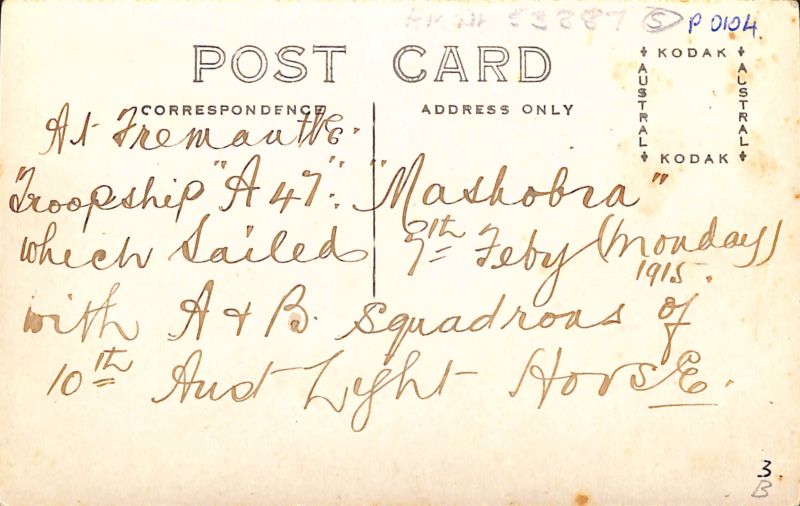 53287 5 P 0104.
POST CARD
KODAK
AUSTRAL
AUSTRAL
KODAK
CORRESPONDENCE
ADDRESS ONLY
At Fremantle.
Troopship "A 47". "Mashobra"
which Sailed 9th Feby (Monday)
1915.
with A & B. Squadrons of
10th Aust Light Horse.
3.
B